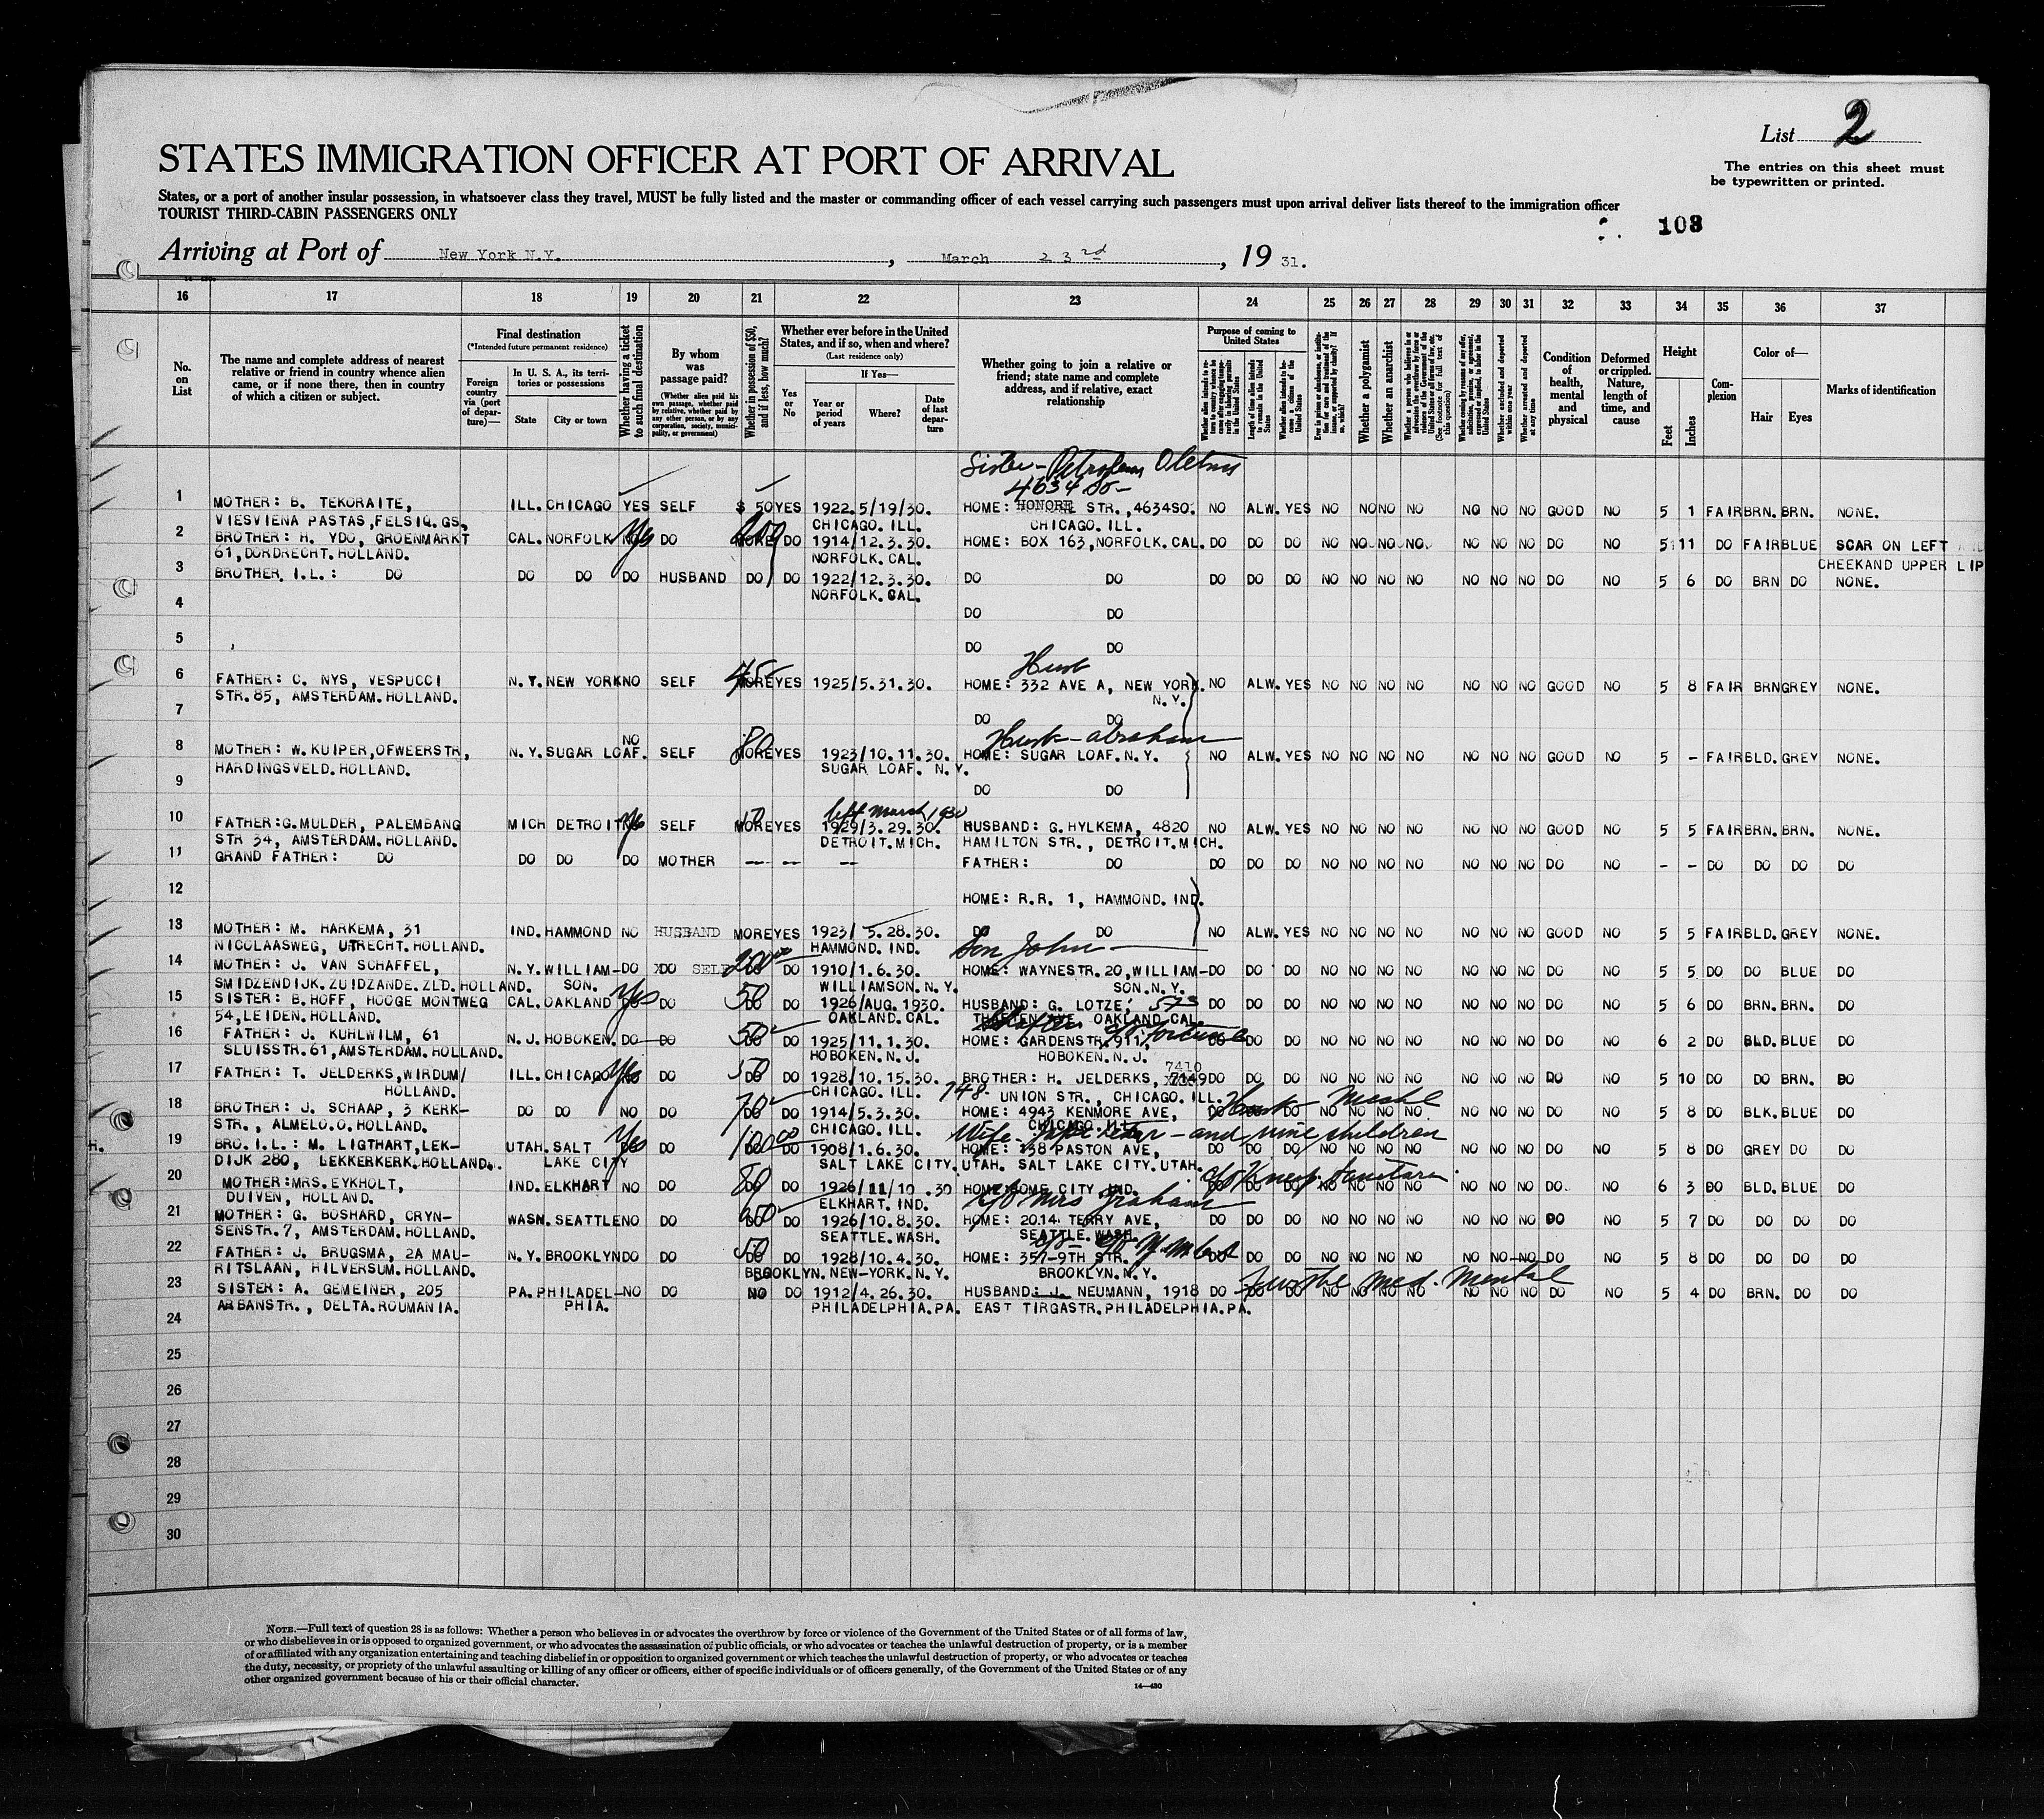 List 2
STATES IMMIGRATION OFFICER AT PORT OF ARRIVAL
The entries on this sheet must
be typewritten or printed.
States, or a port of another insular possession, in whatsoever class they travel, MUST be fully listed and the master or commanding officer of each vessel carrying such passengers must upon arrival deliver lists thereof to the immigration officer
TOURIST THIRD-CABIN PASSENGERS ONLY
108
Arriving at Port of New York N.Y. , March 23rd , 19 31.
16 17 18 19 20 21 22 23 24 25 26 27 28 29 30 31 32 33 34 35 36 37
No. on List
The name and complete address of nearest relative or friend in country whence alien came, or if none there, then in country of which a citizen or subject.
Final destination
(*Intended future permanent residence)
Foreign country via (port of departure)—
In U. S. A., its territories or possessions
State City or town
Whether having a ticket to such final destination
By whom was passage paid?
(Whether alien paid his own passage, whether paid by relative, whether paid by any other person, or by any corporation, society, municipality, or government)
Whether in possession of $50, and if less, how much?
Whether ever before in the United States, and if so, when and where?
(Last residence only)
Yes or No
If Yes—
Year or period of years
Where?
Date of last departure
Whether going to join a relative or friend; state name and complete address, and if relative, exact relationship
Purpose of coming to United States
Whether a polygamist
Whether an anarchist
Condition of health, mental and physical
Deformed or crippled. Nature, length of time, and cause
Height
Feet Inches
Complexion
Color of—
Hair Eyes
Marks of identification
Sister
4634 So
1 MOTHER: B. TEKORAITE, ILL. CHICAGO YES SELF $ 50 YES 1922.5/19/30. HOME: HONORE STR.,4634SO. NO ALW. YES NO NO NO NO NO NO NO GOOD NO 5 1 FAIR BRN. BRN. NONE.
VIESVIENA PASTAS,FELSIQ.GS, CHICAGO. ILL. CHICAGO. ILL.
2 BROTHER: H. YDO, GROENMARKT CAL. NORFOLK Yes DO 1914/12.3.30. HOME: BOX 163,NORFOLK.CAL. DO DO DO NO NO NO NO. NO NO NO DO NO 5 11 DO FAIR BLUE SCAR ON LEFT
61,DORDRECHT.HOLLAND. NORFOLK. CAL. CHEEKAND UPPER LIP
3 BROTHER. I.L.: DO DO DO DO HUSBAND DO DO 1922/12.3.30. DO DO DO DO DO NO NO NO NO NO NO NO DO NO 5 6 DO BRN DO NONE.
NORFOLK. CAL.
4 DO DO
5 DO DO
Husb
6 FATHER: C. NYS, VESPUCCI N.Y. NEW YORK NO SELF 45 MORE YES 1925/5.31.30. HOME: 332 AVE A, NEW YORK. NO ALW. YES NO NO NO NO NO NO NO GOOD NO 5 8 FAIR BRN GREY NONE.
STR.85, AMSTERDAM.HOLLAND. N.Y.
7 DO DO
Husb - Abraham
8 MOTHER: W.KUIPER,OFWEERSTR, N.Y. SUGAR LOAF. NO SELF 80 MORE YES 1923/10.11.30. HOME: SUGAR LOAF.N.Y. NO ALW. YES NO NO NO NO NO NO NO GOOD NO 5 - FAIR BLD. GREY NONE.
HARDINGSVELD.HOLLAND. SUGAR LOAF. N.Y.
9 DO DO
left March 1930
10 FATHER:G.MULDER, PALEMBANG MICH DETROIT Yes SELF MORE YES 1929/3.29.30. HUSBAND: G.HYLKEMA, 4820 NO ALW. YES NO NO NO NO NO NO NO GOOD NO 5 5 FAIR BRN. BRN. NONE.
STR 34, AMSTERDAM.HOLLAND. DETROIT.MICH. HAMILTON STR., DETROIT.MICH.
11 GRAND FATHER: DO DO DO DO MOTHER -- -- -- FATHER: DO DO DO DO NO NO NO NO NO NO NO DO NO - - DO DO DO DO
12 HOME: R.R. 1, HAMMOND. IND.
13 MOTHER: M. HARKEMA, 31 IND. HAMMOND NO HUSBAND MORE YES 1923/ 5.28.30. DO DO NO ALW. YES NO NO NO NO NO NO NO GOOD NO 5 5 FAIR BLD. GREY NONE.
NICOLAASWEG, UTRECHT.HOLLAND. HAMMOND. IND. Son John
14 MOTHER: J. VAN SCHAFFEL, N.Y. WILLIAM- DO DO SELF 200 DO DO 1910/1.6.30. HOME: WAYNESTR.20,WILLIAM- DO DO DO NO NO NO NO NO NO NO DO NO 5 5 DO DO BLUE DO
SMIDZENDIJK.ZUIDZANDE.ZLD.HOLLAND. SON. WILLIAMSON. N.Y. SON.N.Y.
15 SISTER: B.HOFF, HOOGE MONTWEG CAL. OAKLAND Yes DO 50 DO DO 1926/AUG. 1930. HUSBAND: G. LOTZE, 573 DO DO DO NO NO NO NO NO NO NO DO NO 5 6 DO BRN. BRN. DO
54,LEIDEN.HOLLAND. OAKLAND.CAL. AVE OAKLAND CAL
16 FATHER: J. KUHLWILM, 61 N.J. HOBOKEN. DO DO 50 DO DO 1925/11.1.30. HOME: GARDENSTR.911, DO DO DO NO NO NO NO NO NO NO DO NO 6 2 DO BLD. BLUE DO
SLUISSTR.61,AMSTERDAM.HOLLAND. HOBOKEN. N.J. HOBOKEN. N.J.
7410
17 FATHER: T. JELDERKS,WIRDUM/ ILL. CHICAGO Yes DO 50 DO DO 1928/10.15.30. BROTHER: H. JELDERKS, 7149 DO DO DO NO NO NO NO NO NO NO DO NO 5 10 DO DO BRN. DO
HOLLAND. CHICAGO. ILL. 748 UNION STR., CHICAGO. ILL.
18 BROTHER: J. SCHAAP, 3 KERK- DO DO NO DO 70 DO DO 1914/5.3.30. HOME: 4943 KENMORE AVE, DO DO NO NO NO NO NO NO NO DO NO 5 8 DO BLK. BLUE DO
STR., ALMELO.O.HOLLAND. CHICAGO. ILL. CHICAGO.ILL.
Wife - and nine children
H. 19 BRO. I.L.: M. LIGTHART,LEK- UTAH. SALT Yes DO 100 DO DO 1908/1.6.30. HOME: 138 PASTON AVE, DO DO DO NO NO NO NO NO NO NO DO NO 5 8 DO GREY DO DO
DIJK 280, LEKKERKERK.HOLLAND. LAKE CITY SALT LAKE CITY.UTAH. SALT LAKE CITY.UTAH.
20 MOTHER:MRS.EYKHOLT, IND. ELKHART NO DO 80 DO DO 1926/11/10 .30 HOME: ROME CITY IND. DO DO DO NO NO NO NO NO NO NO DO. NO 6 3 DO BLD. BLUE DO
DUIVEN, HOLLAND. ELKHART. IND. c/o Mrs Graham
21 MOTHER: G. BOSHARD, CRYN- WASH. SEATTLE NO DO DO DO 1926/10.8.30. HOME: 2014 TERRY AVE, DO DO DO NO NO NO NO NO NO NO DO NO 5 7 DO DO DO DO
SENSTR.7, AMSTERDAM.HOLLAND. SEATTLE.WASH. SEATTLE.WASH.
22 FATHER: J. BRUGSMA, 2A MAU- N.Y. BROOKLYN DO DO 50 DO DO 1928/10.4.30. HOME: 357-9TH STR. DO DO DO NO NO NO NO NO NO NO DO NO 5 8 DO DO DO DO
RITSLAAN, HILVERSUM.HOLLAND. BROOKLYN.NEW-YORK.N.Y. BROOKLYN.N.Y.
Further med. mental
23 SISTER: A. GEMEINER, 205 PA. PHILADEL- NO DO NO DO 1912/4.26.30. HUSBAND: J. NEUMANN, 1918 DO DO DO NO NO NO NO NO NO NO DO NO 5 4 DO BRN. DO DO
ARBANSTR., DELTA.ROUMANIA. PHIA. PHILADELPHIA.PA. EAST TIRGASTR.PHILADELPHIA.PA.
24
25
26
27
28
29
30
NOTE.—Full text of question 28 is as follows: Whether a person who believes in or advocates the overthrow by force or violence of the Government of the United States or of all forms of law,
or who disbelieves in or is opposed to organized government, or who advocates the assassination of public officials, or who advocates or teaches the unlawful destruction of property, or is a member
of or affiliated with any organization entertaining and teaching disbelief in or opposition to organized government or which teaches the unlawful destruction of property, or who advocates or teaches
the duty, necessity, or propriety of the unlawful assaulting or killing of any officer or officers, either of specific individuals or of officers generally, of the Government of the United States or of any
other organized government because of his or their official character.
14—430